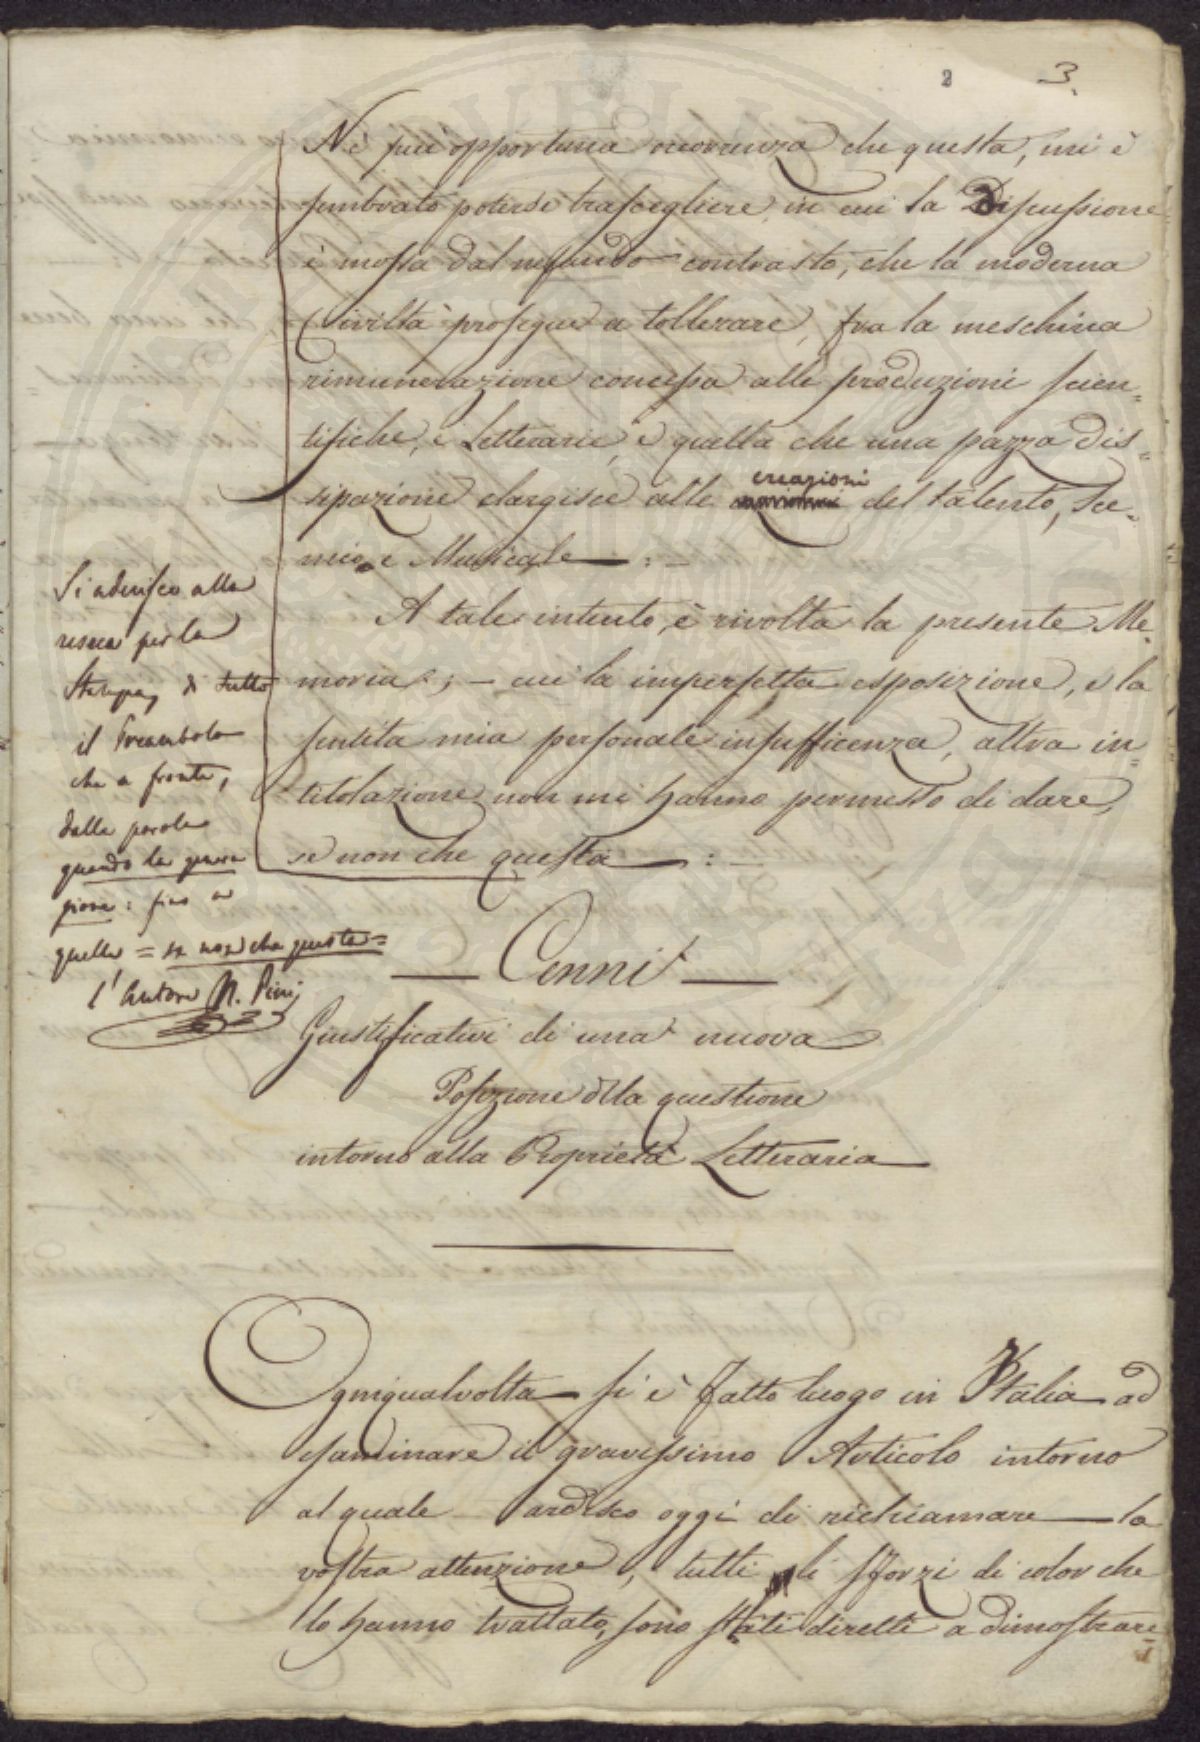 2 3.
Nè più opportuna ricorrenza che questa, mi è
sembrato potersi trascegliere, in cui la Discussione
è mossa dal nefando contrasto, che la moderna
Civiltà prosegue a tollerare, fra la meschina
rimunerazione concessa alle produzioni scien=
tifiche, e Letterarie, e quella che una pazza dis=
sipazione elargisce alle creazioni del talento, Sce=
nico, e Musicale :
A tale intento, è rivolta la presente Me=
moria; – cui la imperfetta esposizione, e la
sentita mia personale insufficenza, altra in=
titolazione non mi hanno permesso di dare,
se non che questa : –
Si aderisco alla
resica per la
Stampa, di tutto
il Preambolo
che a fronte,
dalla parola
quando la
fino a
quella = se non che questa =
l'Autore N. Pini
— Cenni —
Giustificativi di una nuova
Posizione della questione
intorno alla Proprietà Letteraria
Ogniqualvolta si è fatto luogo in Italia ad
esaminare il gravissimo Articolo intorno
al quale ardisco oggi di richiamare la
vostra attenzione, tutti gli sforzi di color che
lo hanno trattato, sono stati diretti a dimostrare